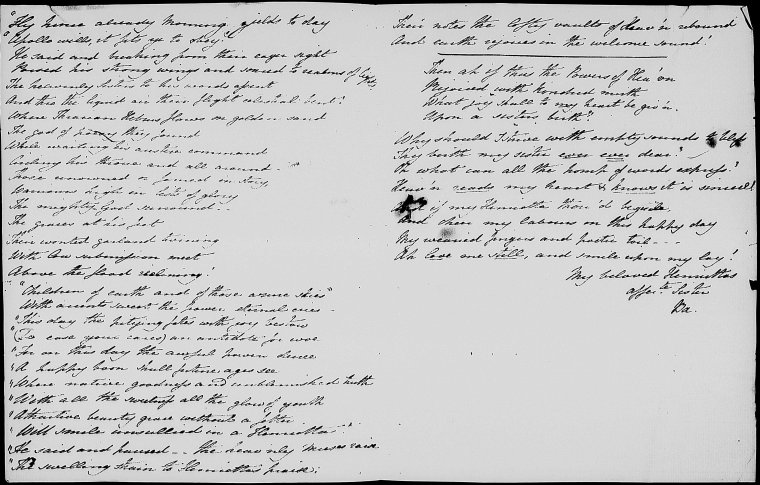 "Fly hence already Morning yields to day
"Apollo wills, it fits ye to obey"
He said and breaking from their eager sight
Poised his strong wings and soared to realms of light
The heavenly sisters to his words assent
And thro the liquid air their flight celestial bent!
Where Thracian Hebrus flows on golden sand
The god of poesy they found
While waiting his command
Circling his throne and all around
Those renowned or famed in story,
high in lists of glory
The mighty God
The graces at his feet
Their wonted garland twining
With low submission meet
Above the flood reclining!
"Children of earth and of those azure skies"
With accents sweet the power eternal cries
"This day the pitying fates with joy bestow
"(To ease your cares) an antidote for woe
"For on this day the awful power decree
"A happy boon shall future ages see
"Where native goodness and unblemished truth
"With all the sweetness all the glow of youth
"Attractive beauty grace without a fetter
"Will smile unsullied in a Henrietta"
"He said and paused -- the heavenly Muses raise
"The swelling strain to Henrietta's praise:
Their notes the lofty vaults of Heav'n rebound
And earth rejoices in the welcome sound!
Then ah if thus the Powers of Heav'n
Rejoiced with hundred mirth
What joy shall to my heart be giv'n
Upon a sisters birth?
Why should I strive with empty sounds to bless
Thy birth my sister ever ever dear?
Or what can all the pomp of words express?
Heav'n reads my heart & knows it is sincere!
if my Henrietta thou'd beguile
And cheer my labours on this happy day
My wearied fingers and poetic toil - - -
Ah love me still, and smile upon my lay!
My beloved Henriettas
affec.te Sister
Ba.